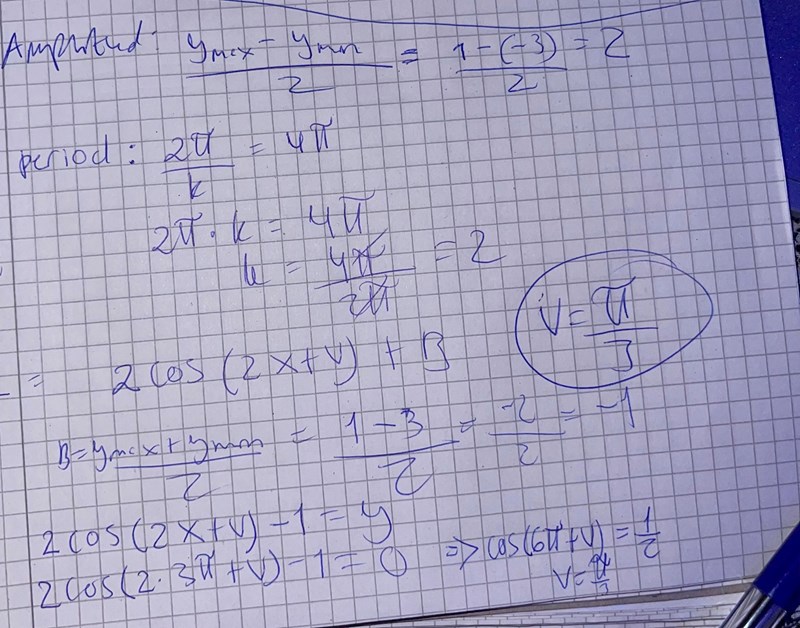 Amplitud: (y_max - y_min)/2 = (1-(-3))/2 = 2
period: 2π/k = 4π
2π·k = 4π
k = 4π/2π = 2
V = π/3
= 2cos(2x+v) + B
B = (y_max + y_min)/2 = (1-3)/2 = -2/2 = -1
2cos(2x+v)-1 = y
2cos(2·3π+v)-1 = 0 => cos(6π+v) = 1/2